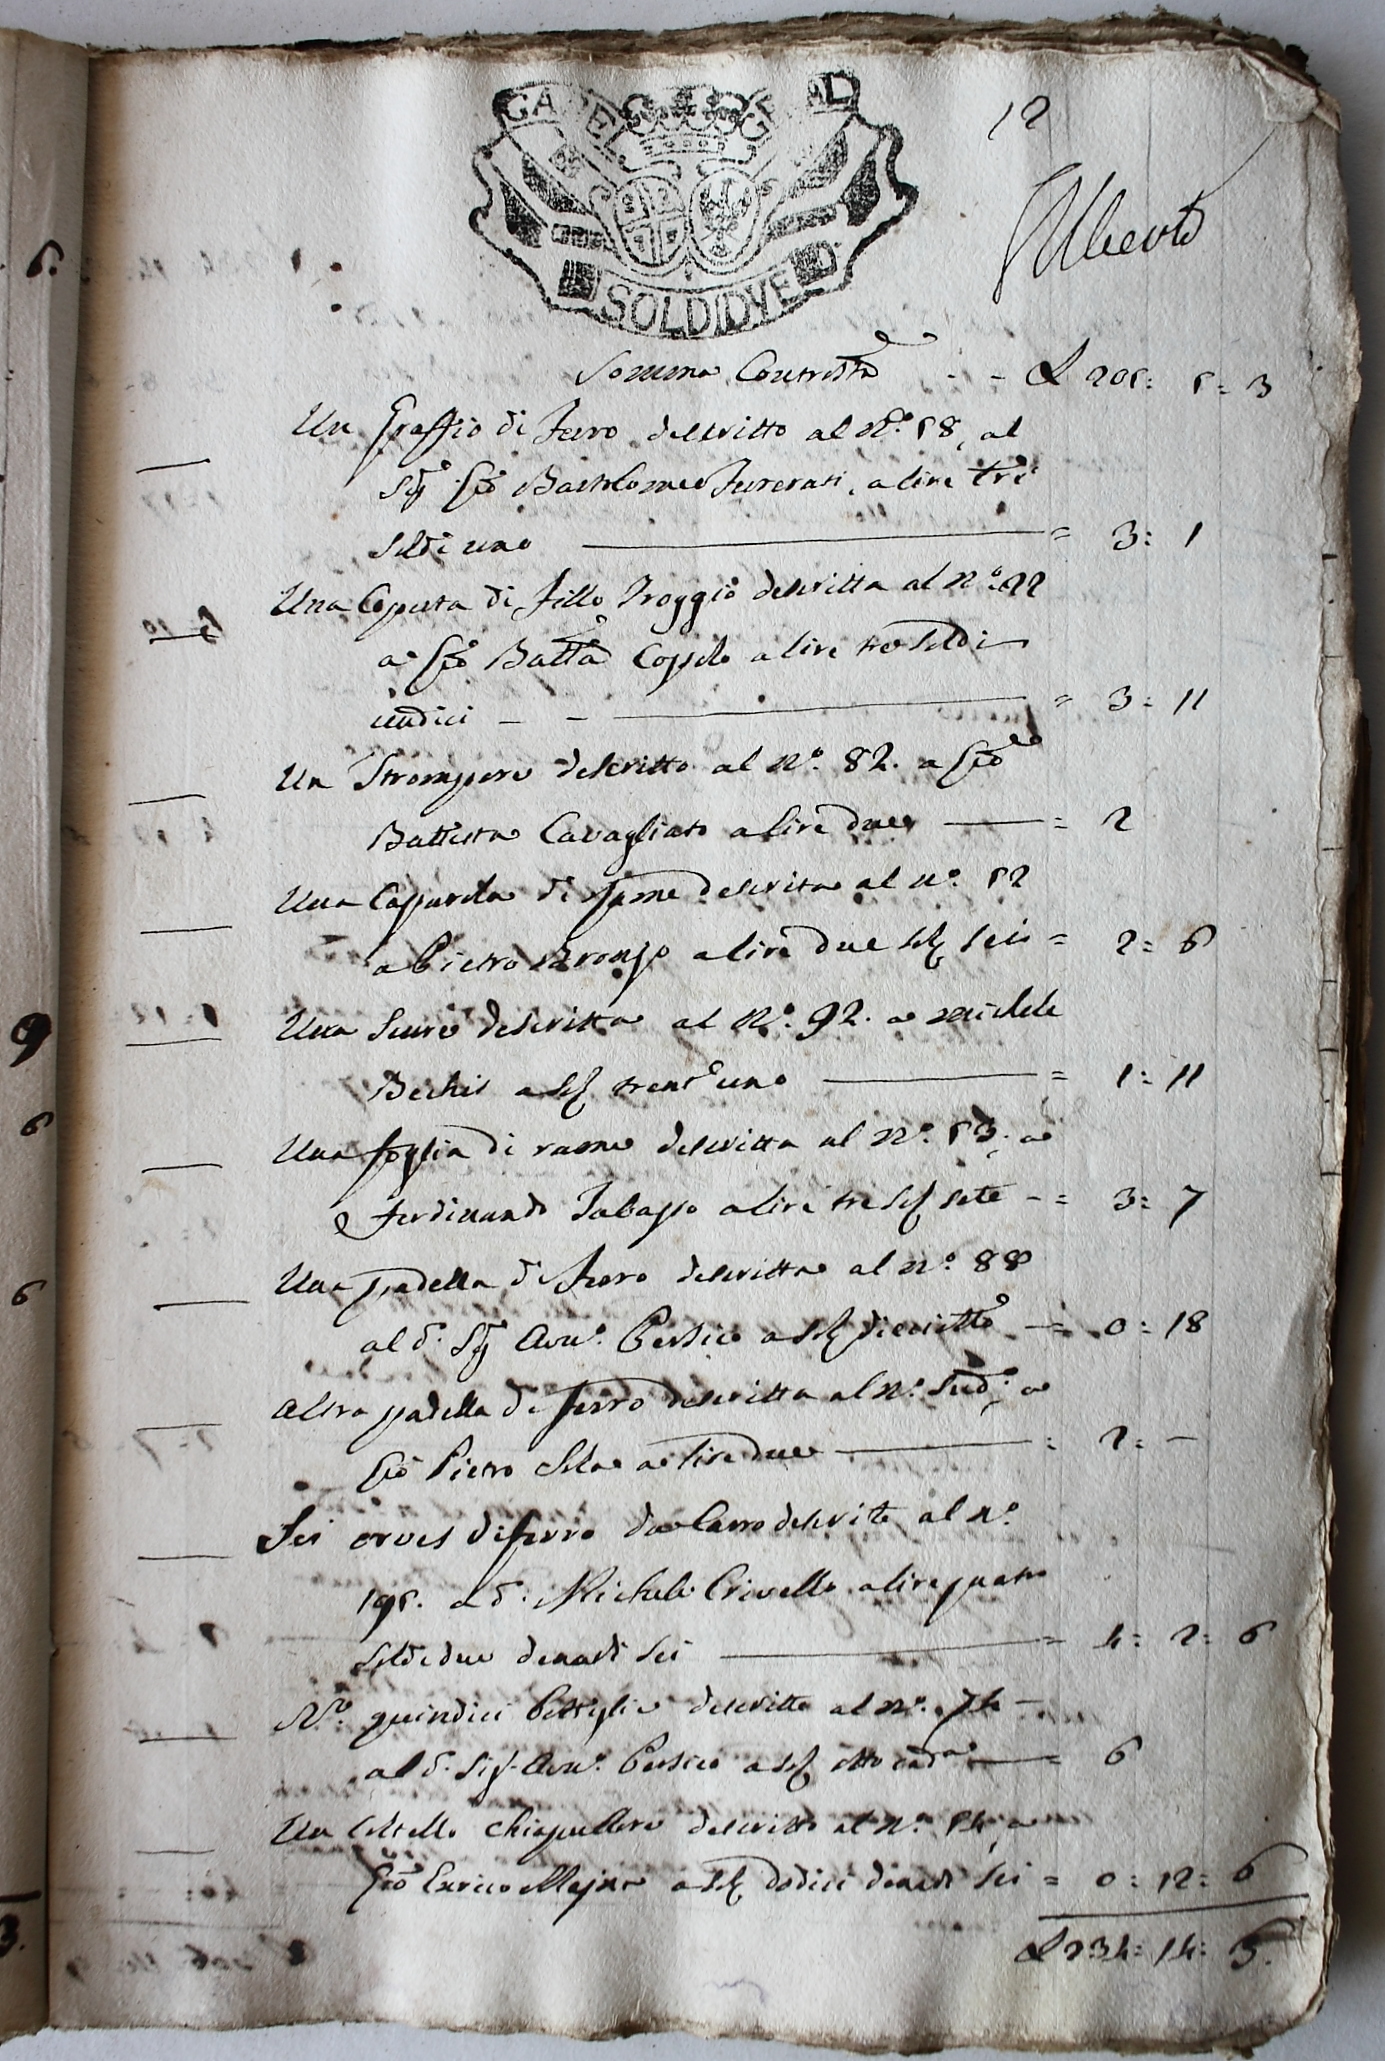 GABEL GENERAL
12
SOLDI DVE
Uberto
Somma Contrasta - - £ 205: 5: 3
Un graffio di ferro descritto al N.° 58, al
Sig.r Gio Bartolomeo a lire tre
soldi uno = 3: 1
Una Coperta di fillo descritta al N.° 22
a Gio Batta Coppelo a lire tre soldi
undici - - = 3: 11
Un descritto al N.° 82. a Gio
Battista Cavagliato a lire due = 2
Una di descritta al n.° 52
a Pietro a lire due sol sei = 2: 6
Una Scure descritta al N.° 92. a Michele
Bechis a sol trent'uno = 1: 11
Una foglia di rame descritta al N.° 53. a
Ferdinando Tabasso a lire tre sol sette - = 3: 7
Una padella di ferro descritta al N.° 88
al d.° Sig Avv.° Persico a sol dieciotto - = 0: 18
Altra padella di ferro descritta al N.° sud.° a
Gio Pietro a lire due = 2: -
Sei di ferro da Carro descritte al N.°
195. a d.° Michele Crivello a lire quatro
soldi due denari sei = 4: 2: 6
N.° quindici Bottiglie descritte al N.° 74 -
al d.° Sig. Avv.° Persico a sol otto cad.a = 6
Un Coltello descritto al N.° 54, a
Gio Enrico a sol dodici denari sei = 0: 12: 6
£ 234: 14: 3.
6.
9
6
6
3.